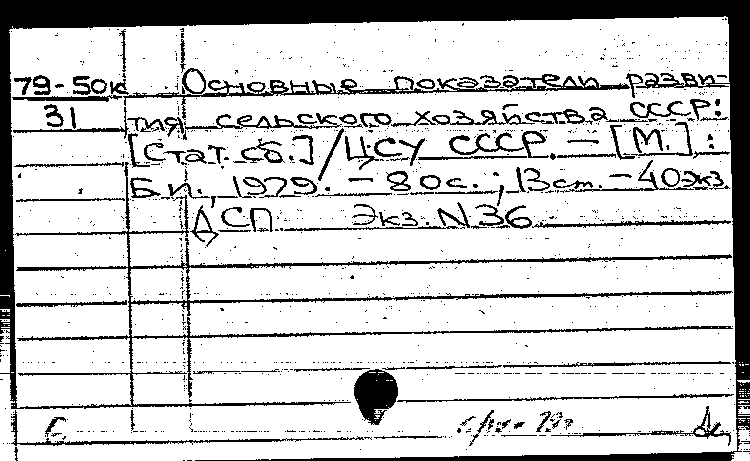 79-50к Основные показатели разви-
31 тия сельского хозяйства СССР:
[Стат. сб.] / ЦСУ СССР. — [М.] :
Б.и., 1979. — 80с.; 13 ст. — 40 экз.
ДСП Экз. N 36
6